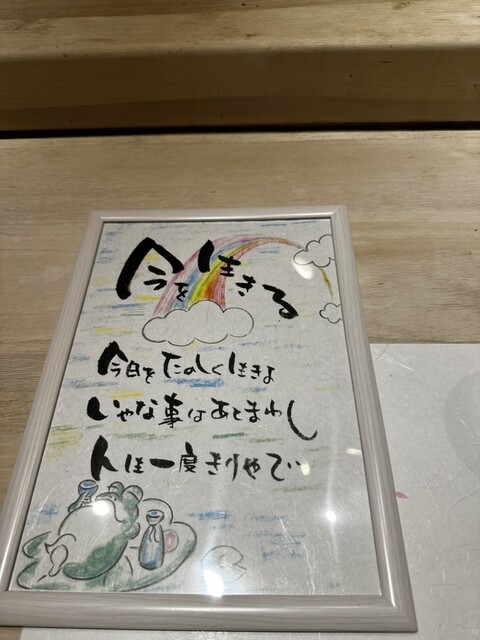 今を生きる
今日をたのしく生きよ
いやな事はあとまわし
人生一度きりやで…